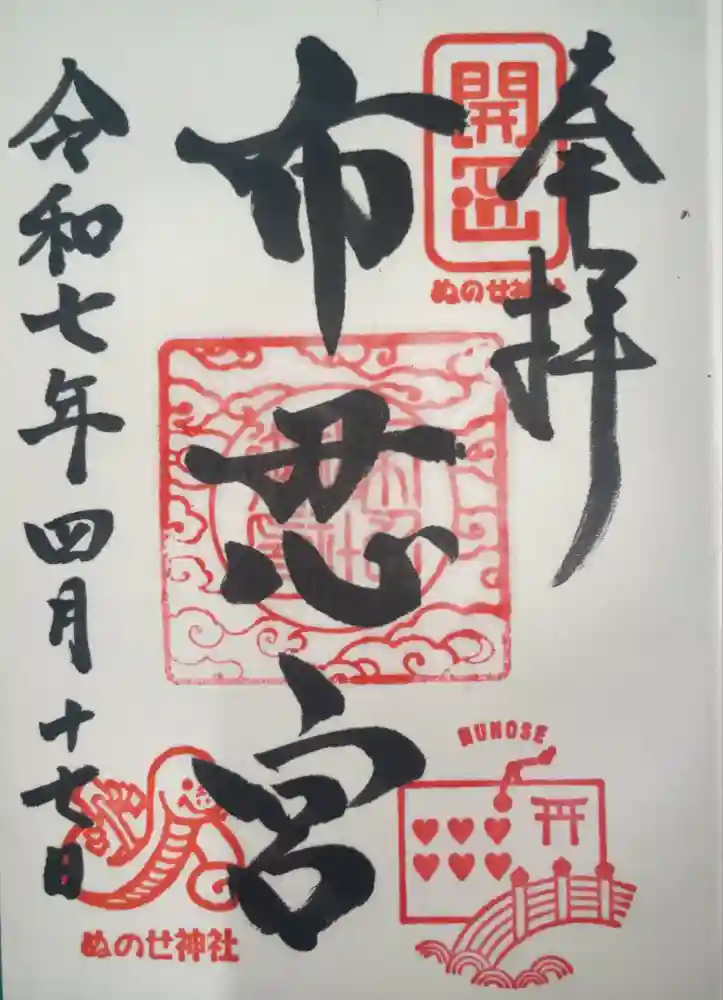 奉拝
開运
ぬのせ神社
布忍宮
NUNOSE
令和七年四月十七日
ぬのせ神社